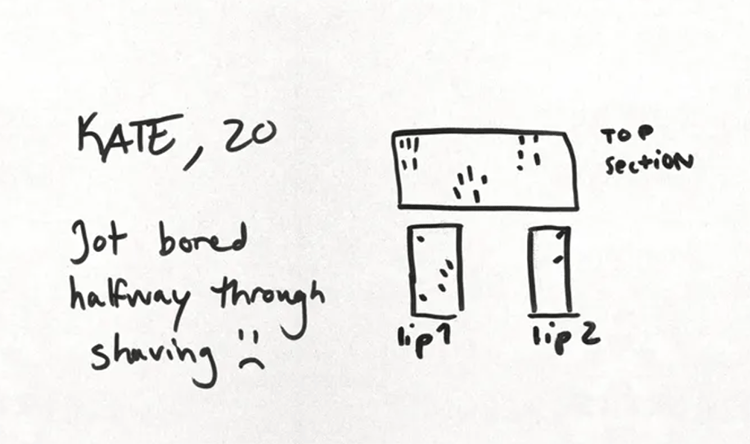 KATE, 20
Got bored
halfway through
shaving :(
TOP
section
lip 1
lip 2